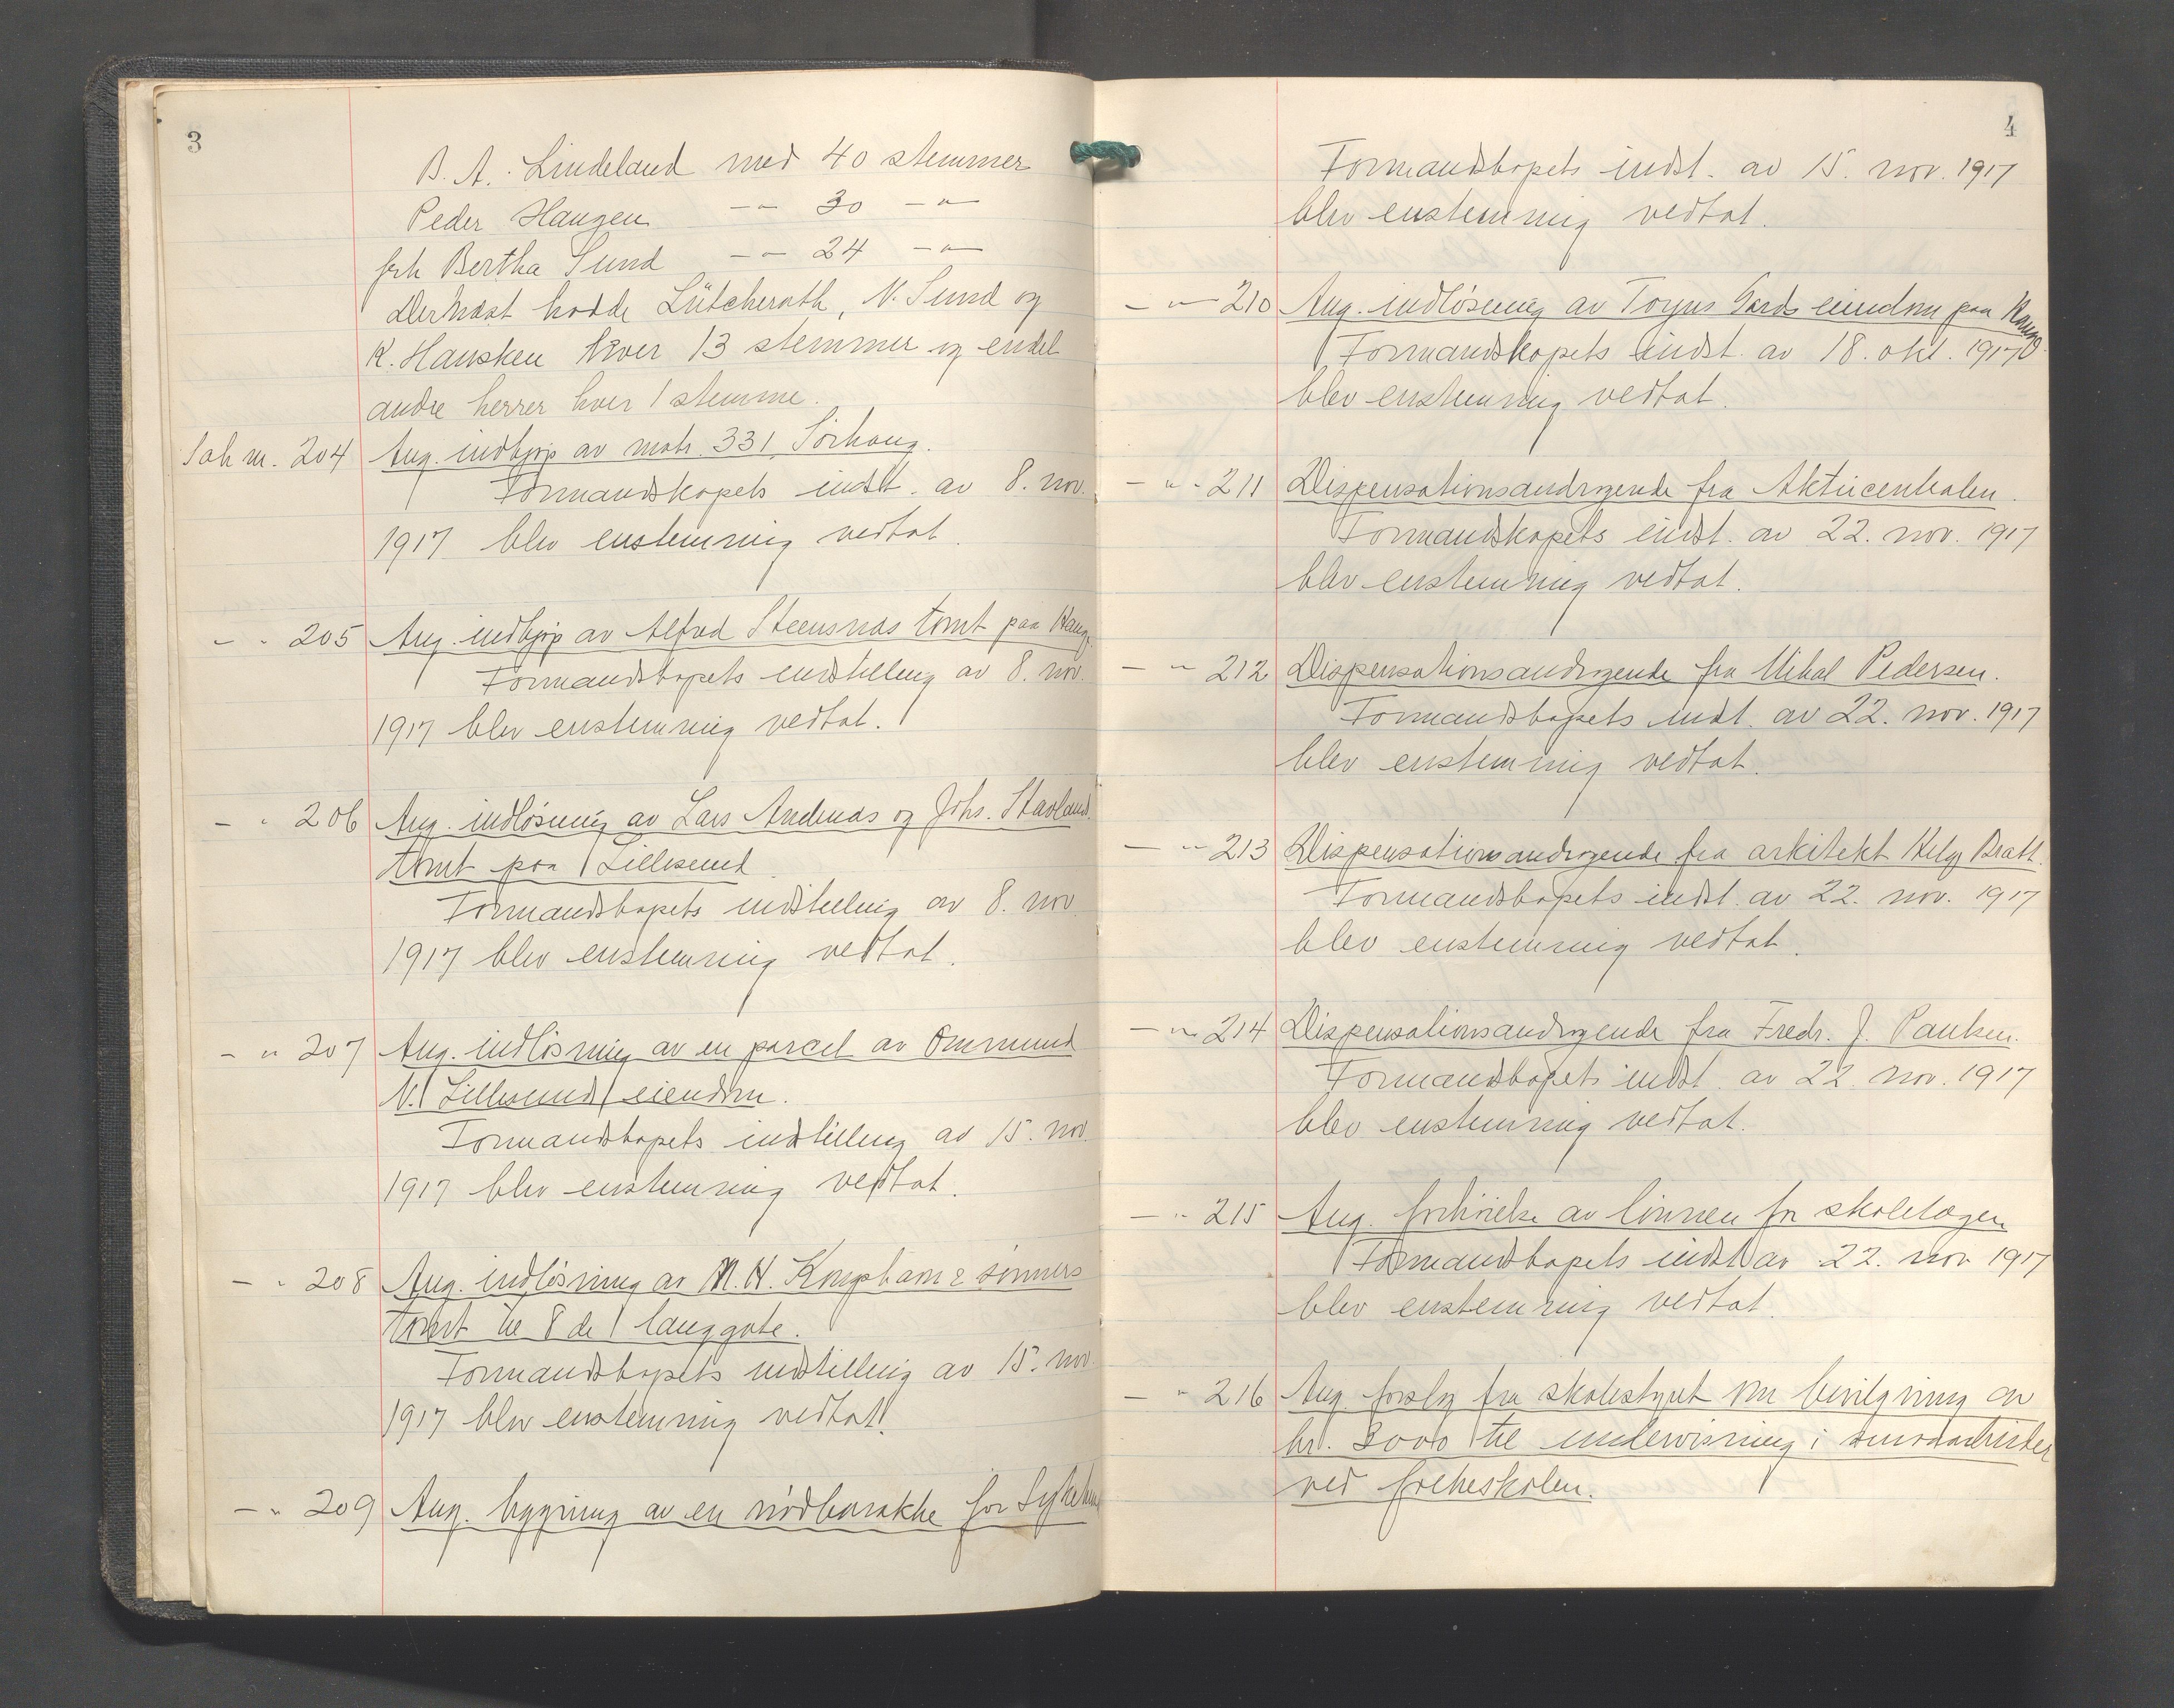 3
B. A. Lindeland med 40 stemmer
Peder Haugen — " — 30 — " —
frk Bertha Sund — " — 24 — " —
Dernæst hadde Lütcherath, N. Sund og
K. Hausken hver 13 stemmer og endel
andre herrer hver 1 stemme.
Sak nr. 204 Ang. indkjøp av matr. 331, Sörhaug.
Formandskapets indst. av 8. nov.
1917 blev enstemmig vedtat.
— " 205 Ang. indkjøp av Alfred Steensnæs tomt paa Haug.
Formandskapets indstilling av 8. nov.
1917 blev enstemmig vedtat.
— " 206 Ang. indlösning av Lars Andreas og Johs. Stavland
tomt paa Lillesund.
Formandskapets indstilling av 8. nov
1917 blev enstemmig vedtat.
— " 207 Ang. indlösning av en parcel av Ommund
N. Lillesund eiendom.
Formandskapets indstilling av 15. nov.
1917 blev enstemmig vedtat.
— " 208 Ang. indlösning av M. N. sönners
tomt til 8de langgate.
Formandskapets indstilling av 15. nov.
1917 blev enstemmig vedtat.
— " 209 Ang. bygning av en nödbarakke for
4
Formandskapets indst. av 15. nov. 1917
blev enstemmig vedtat.
— " — 210 Ang. indlösning av Gards eiendom paa
Formandskapets indst. av 18. okt. 1917
blev enstemmig vedtat.
— " - 211 Dispensationsandragende fra Aktiecentralen.
Formandskapets indst. av 22. nov. 1917
blev enstemmig vedtat.
— " 212 Dispensationsandragende fra Mikal Pedersen.
Formandskapets indst. av 22. nov. 1917
blev enstemmig vedtat.
— " 213 Dispensationsandragende fra arkitekt Helge Bratt.
Formandskapets indst. av 22. nov. 1917
blev enstemmig vedtat.
— " 214 Dispensationsandragende fra Fredr. J. Paulsen.
Formandskapets indst. av 22. nov. 1917
blev enstemmig vedtat.
— " 215 Ang. forhöielse av lönnen for skolelægen
Formandskapets indst av 22. nov 1917
blev enstemmig vedtat.
— " 216 Ang. forslag fra skolestyret om bevilgning av
kr. 3000 til undervisning i
ved folkeskolen.